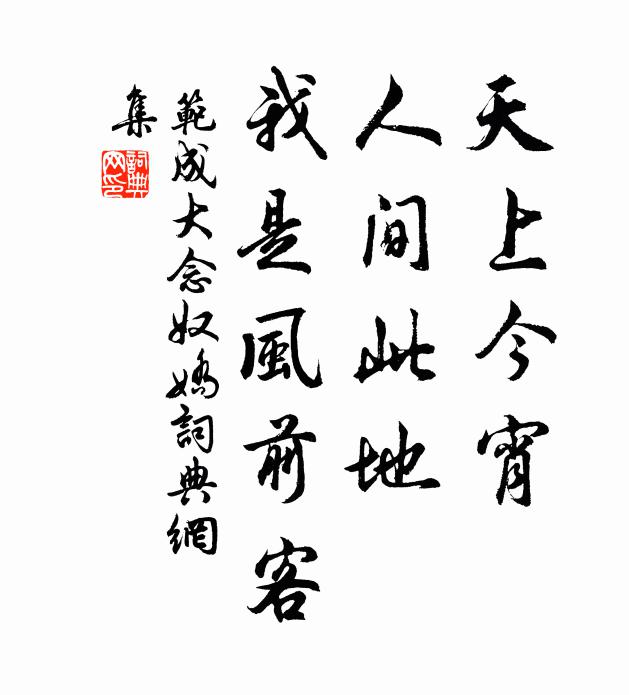 天上今宵
人間此地
我是風前客
範成大念奴嬌詞典網
集
詞典
网印